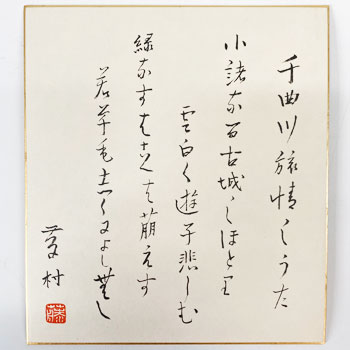 千曲川旅情のうた
小諸なる古城のほとり
雲白く遊子悲しむ
緑なすはこべは萌えす
若草も志くによし無し
藤村
藤